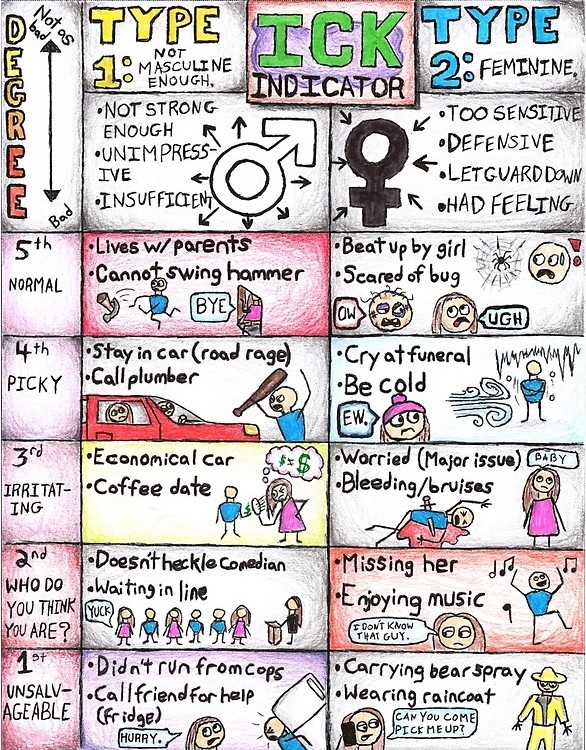 DEGREE
Not as
Bad
Bad
TYPE
1: NOT
MASCULINE
ENOUGH.
ICK
INDICATOR
TYPE
2: FEMININE.
•NOT STRONG
ENOUGH
•UNIMPRESS-
IVE
•INSUFFICIENT
•TOO SENSITIVE
•DEFENSIVE
•LET GUARD DOWN
•HAD FEELING
5th
NORMAL
•Lives w/parents
•Cannot swing hammer
BYE
•Beat up by girl
•Scared of bug
!
OW
UGH
4th
PICKY
•Stay in car (road rage)
•Call plumber
•Cry at funeral
•Be cold
EW.
3rd
IRRITAT-
ING
•Economical car
•Coffee date
•Worried (Major issue)
•Bleeding/bruises
BABY
2nd
WHO DO
YOU THINK
YOU ARE?
•Doesn't heckle Comedian
•Waiting in line
YUCK
•Missing her
•Enjoying music
I DON'T KNOW
THAT GUY.
1st
UNSALV-
AGEABLE
•Didn't run from cops
•Call friend for help
(fridge)
HURRY.
•Carrying bear spray
•Wearing raincoat
CAN YOU COME
PICK ME UP?